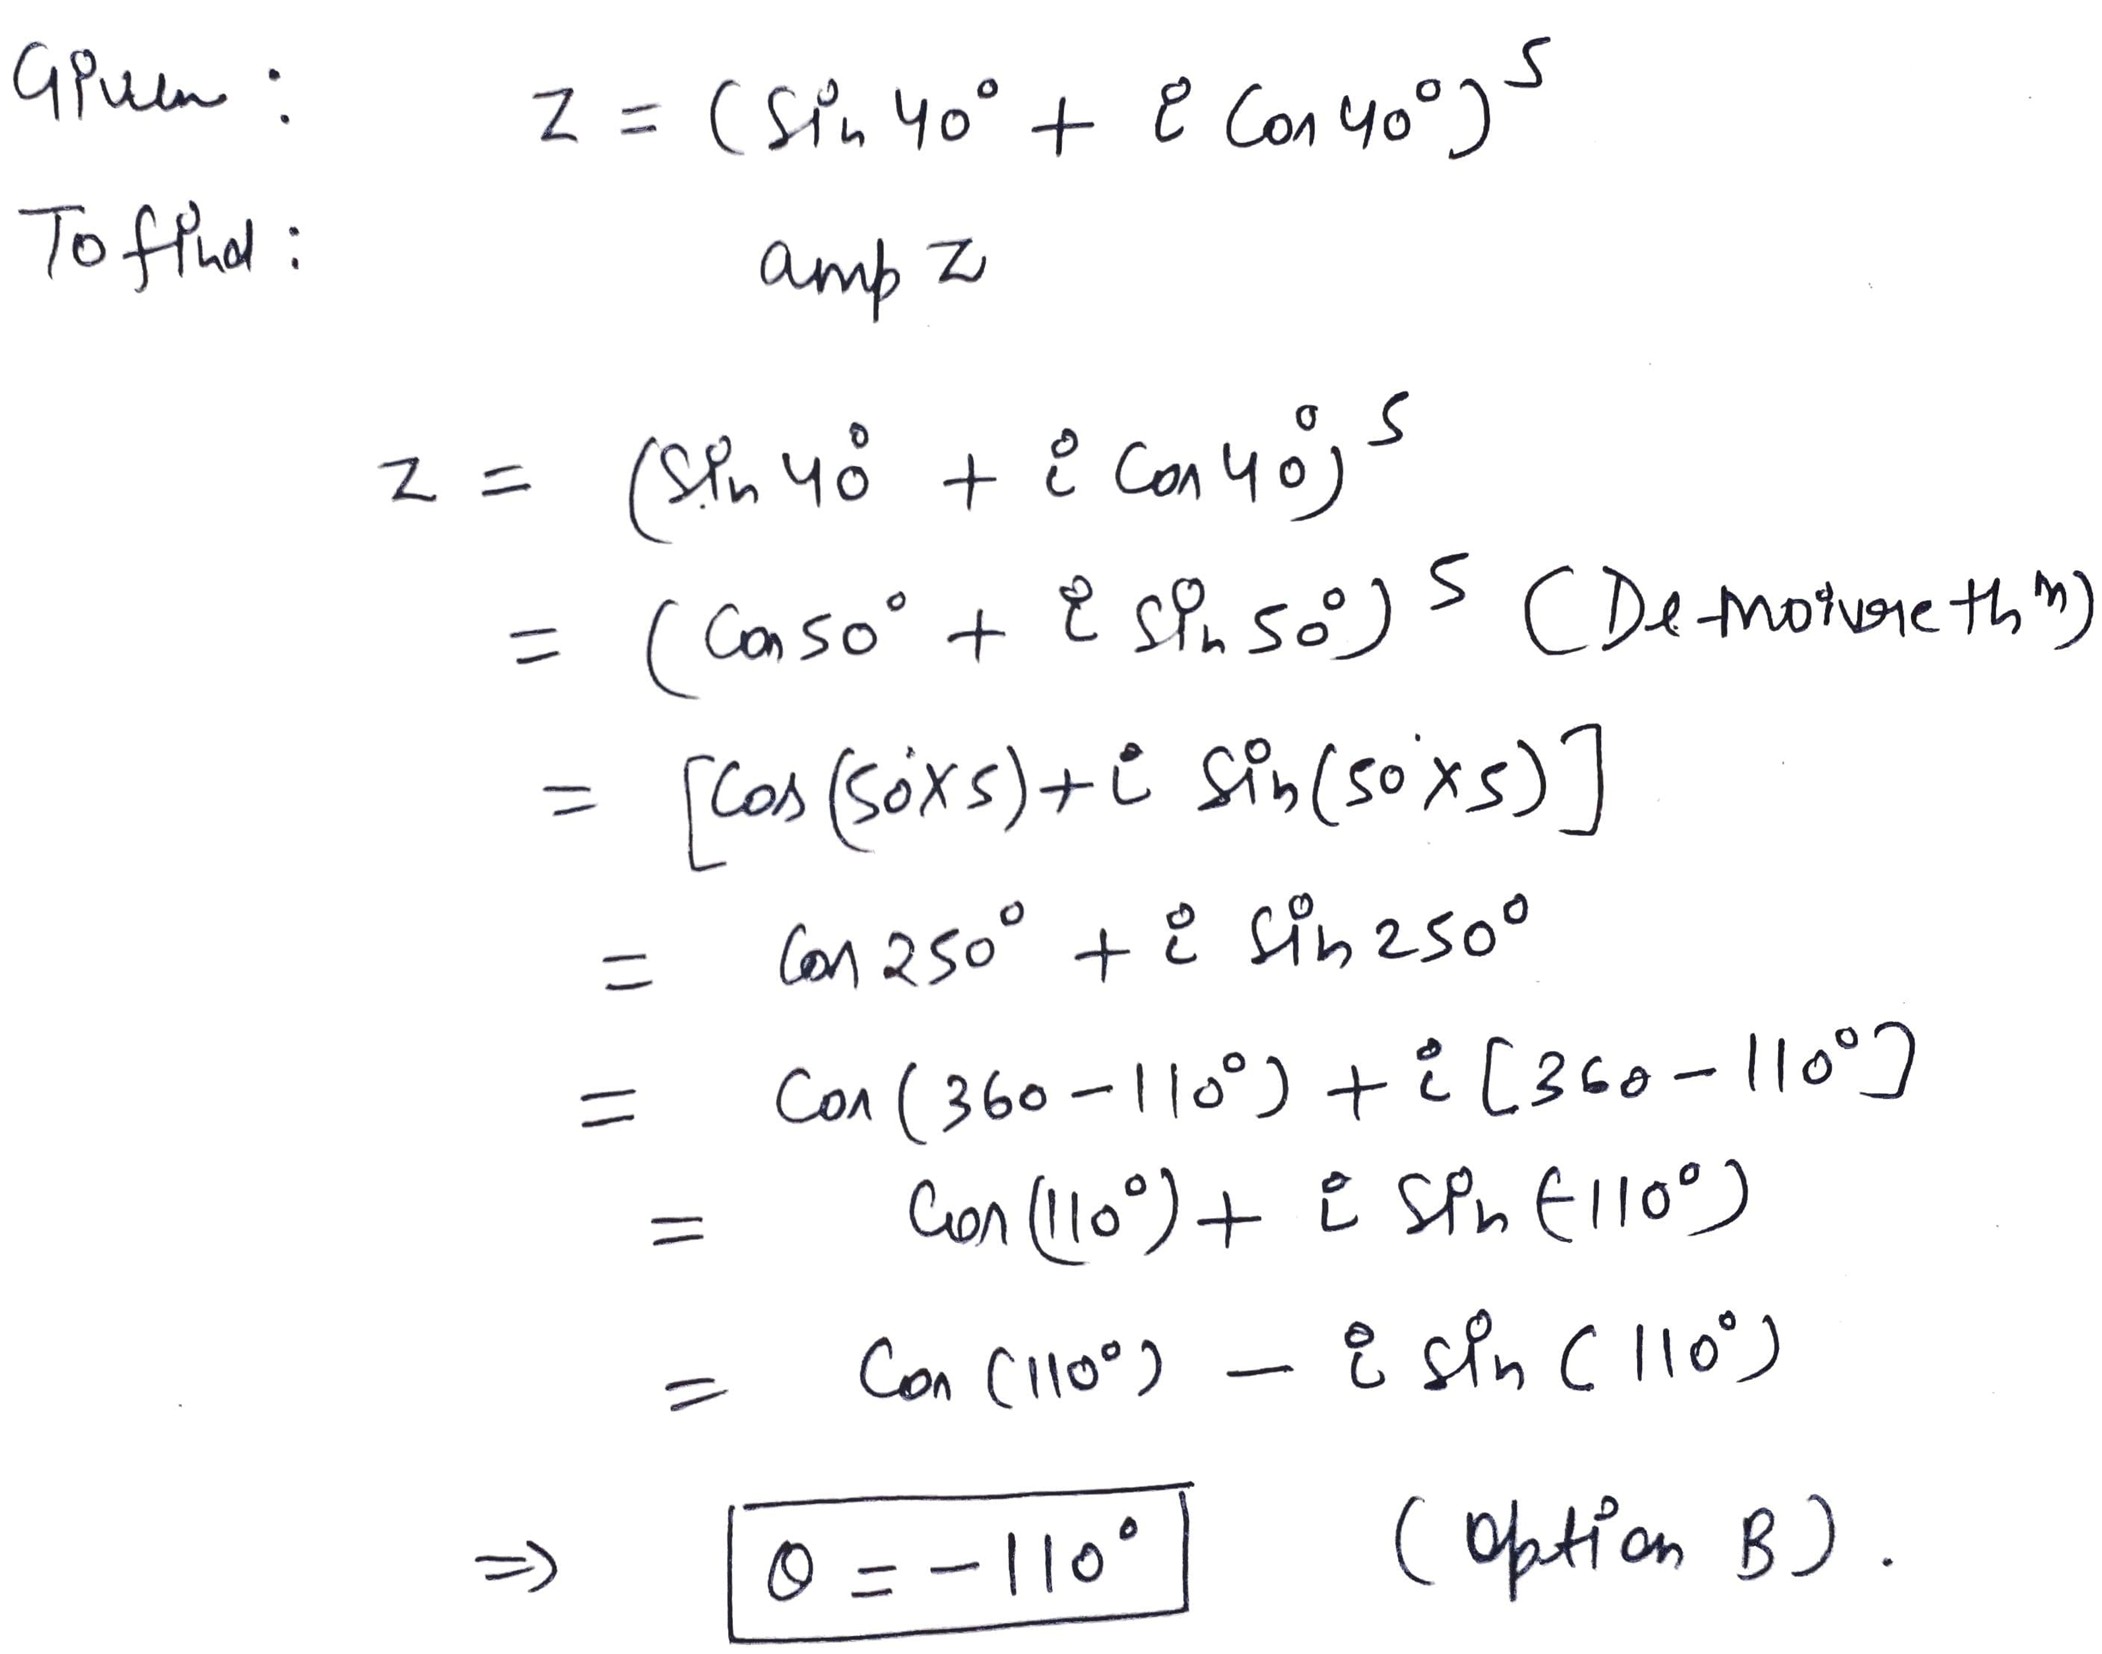 Given : z = (sin 40° + i cos 40°)^5
To find : amp z
z = (sin 40° + i cos 40°)^5
= (cos 50° + i sin 50°)^5 (De-moivre th^m)
= [cos (50°×5) + i sin (50°×5)]
= cos 250° + i sin 250°
= cos (360 - 110°) + i [360 - 110°]
= cos (110°) + i sin (-110°)
= cos (110°) - i sin (110°)
⇒ θ = -110° (Option B).